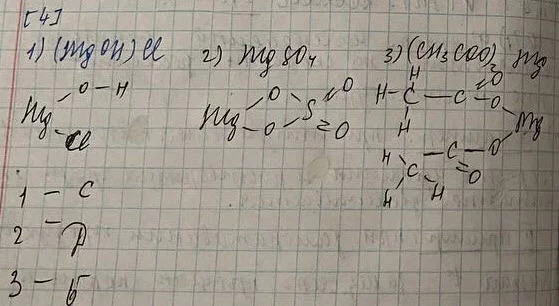 [4]
1) (MgOH)Cl 2) MgSO4 3) (CH3COO)2 Mg
Mg O - H Cl
Mg O O S = O = O
H - C - C = O O H H
Mg
H C - C - O = O H H
1 - C
2 - Д
3 - Б